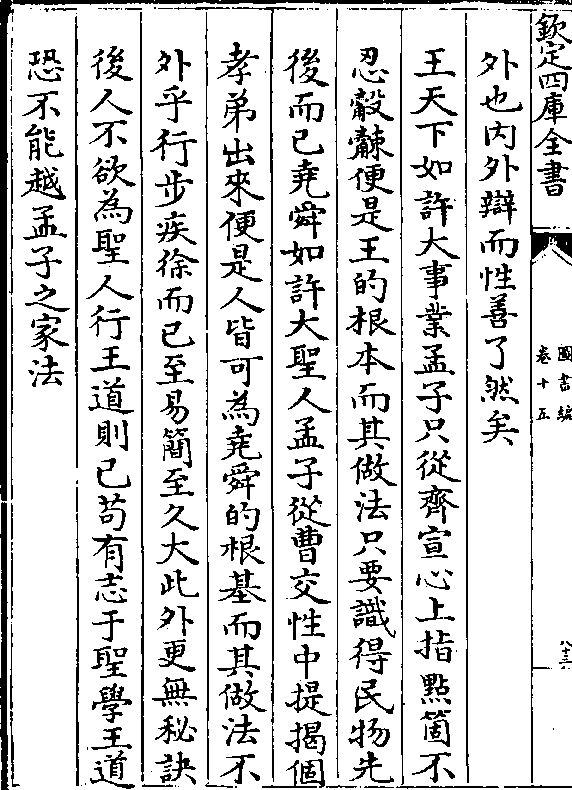 欽定四庫全書
圖書編
卷十五
外也内外辯而性善了然矣
王天下如許大事業孟子只從齊宣心上指點箇不
忍觳觫便是王的根本而其做法只要識得民物先
後而已堯舜如許大聖人孟子從曹交性中提揭個
孝弟出來便是人皆可為堯舜的根基而其做法不
外乎行步疾徐而已至易簡至久大此外更無秘訣
後人不欲為聖人行王道則已苟有志于聖學王道
恐不能越孟子之家法